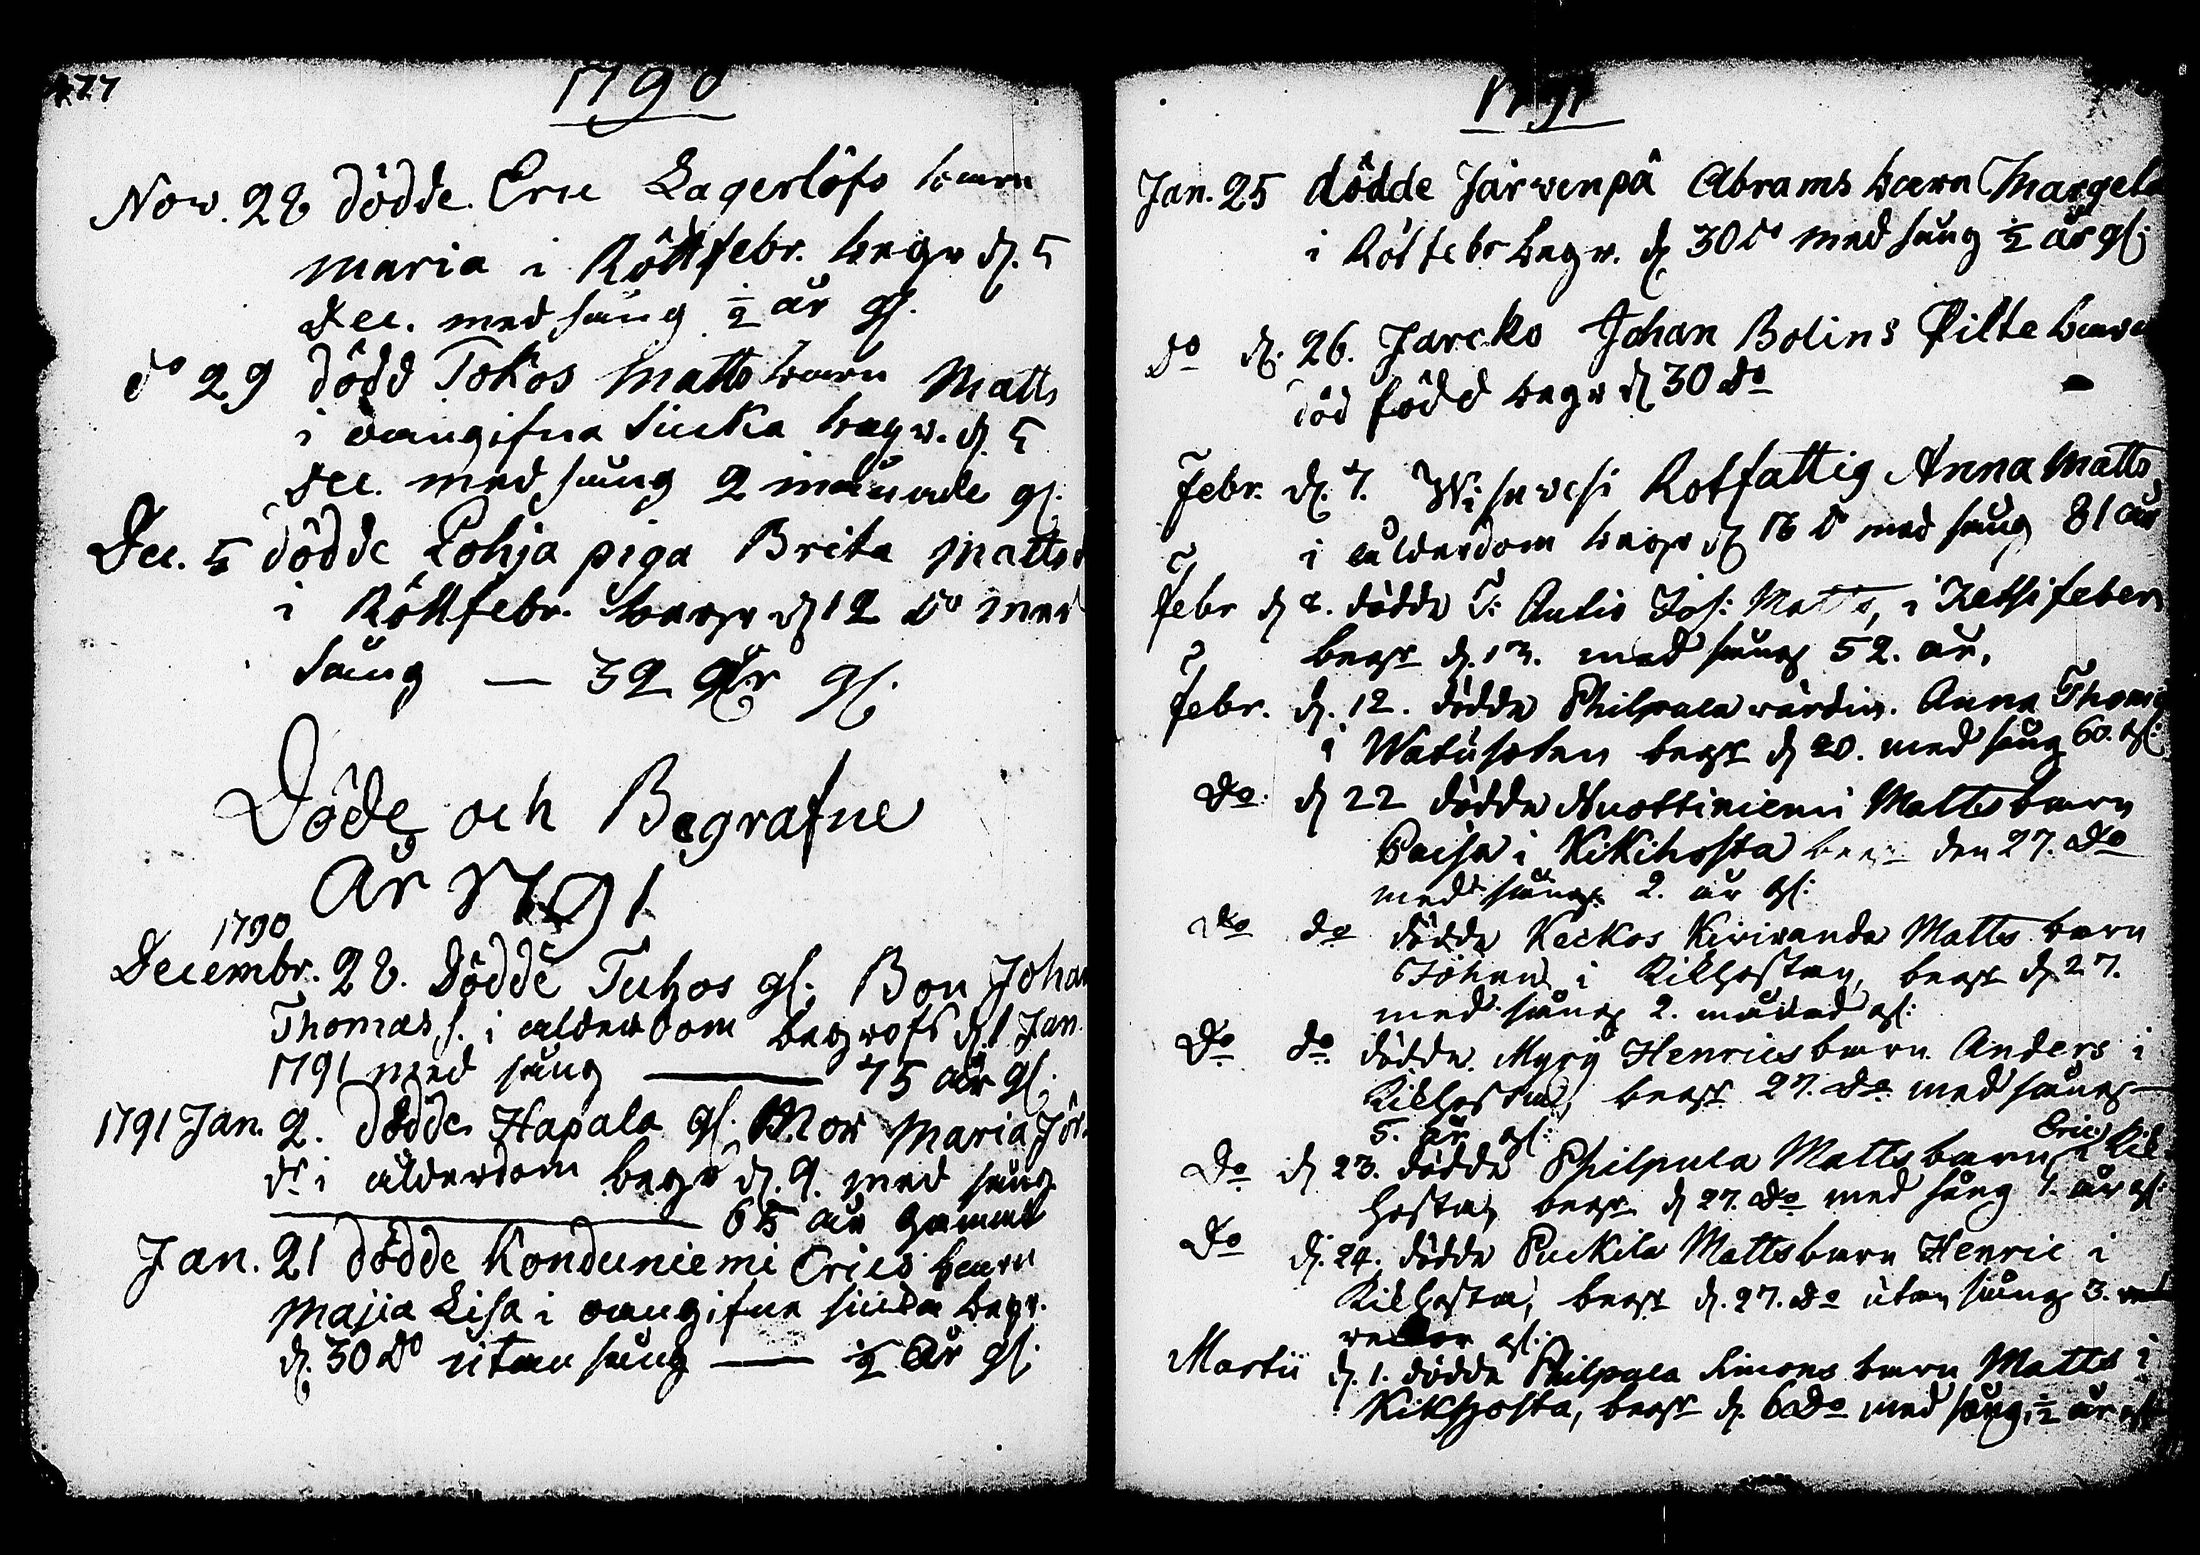 477
1790
Nov. 28 dödde Eric Lagerlöfs barn
Maria i Röttfebr. begr d. 5
Dec. med sång ½ år gl.
do 29 död Tokos Matts barn Matts
i oangifna siuka begr. d. 5
Dec. med sång 2 månade gl.
Dec. 5 dödde Pohja piga Brita Matts
i Röttfebr. begr d 12 do med
sång — 32 år gl.
Döde och Begrafne
År 1791
1790
Decembr. 28. Dödde Tuhos gl. Bon Johan
Thomas s. i alderdom begrofs d. 1 Jan.
1791 med sång — 75 år gl.
1791 Jan. 2. dödde Hapala gl. Mor Maria Jör
dr i ålderdom begr d. 9. med sång
— 65 år gammal
Jan. 21 dödde Konduniemi Erics barn
Majia Lisa i oangifne siuka begr.
d. 30 do utan sång — ½ År gl.
1791
Jan. 25 dödde Järvenpä Abrams barn Margeta
i Rötfebr begr. d 30 do med sång ½ år gl:
do d. 26. Jarcko Johan Bolins Pilte barn
död född begr d 30 do
Febr. d. 7. Wisuvesi Rotfattig Anna Matts
i ålderdom begr d 13 do med sång 81 år
Febr d 8. dödde T: Antio Joh: Matts, i Retsifeber
begr d. 13. med sång 52. år.
Febr. d. 12. dödde Philpala värdin. Anna Thomæ
i Watusoten begr d 20. med sång 60. gl:
Do. d 22 dödde Nuottiniemi Matts barn
Caisa i Kikihosta begr den 27. Do
med sång 2. år gl:
Do do dödde Keckos Kiviranda Matts barn
Johan i Kikhostan, begr d 27.
med sång 2. månad gl:
Do do dödde. Myry Henrics barn Anders i
Kikhosta, begr 27. Do med sång
5. år gl:
Do d 23. dödde Philpula Matts barn Eric i Kik-
hosta, begr d 27. Do med sång 1. år gl:
Do d. 24. dödde Puckila Matts barn Henric i
Kikhosta, begr d. 27. Do utan sång 3.
veckor gl:
Martii d. 1. dödde Philpala Simons barn Matts i
Kikhosta, begr d. 6 Do med sång, ½ år gl